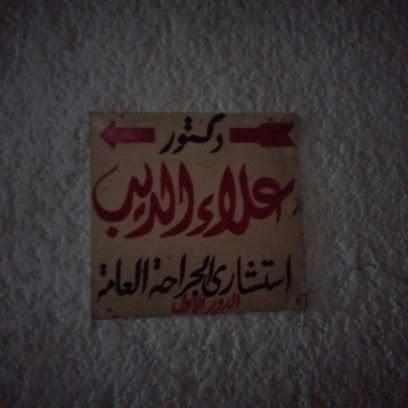 دكتور
علاء الديب
استشارى الجراحة العامة
الدور الأول